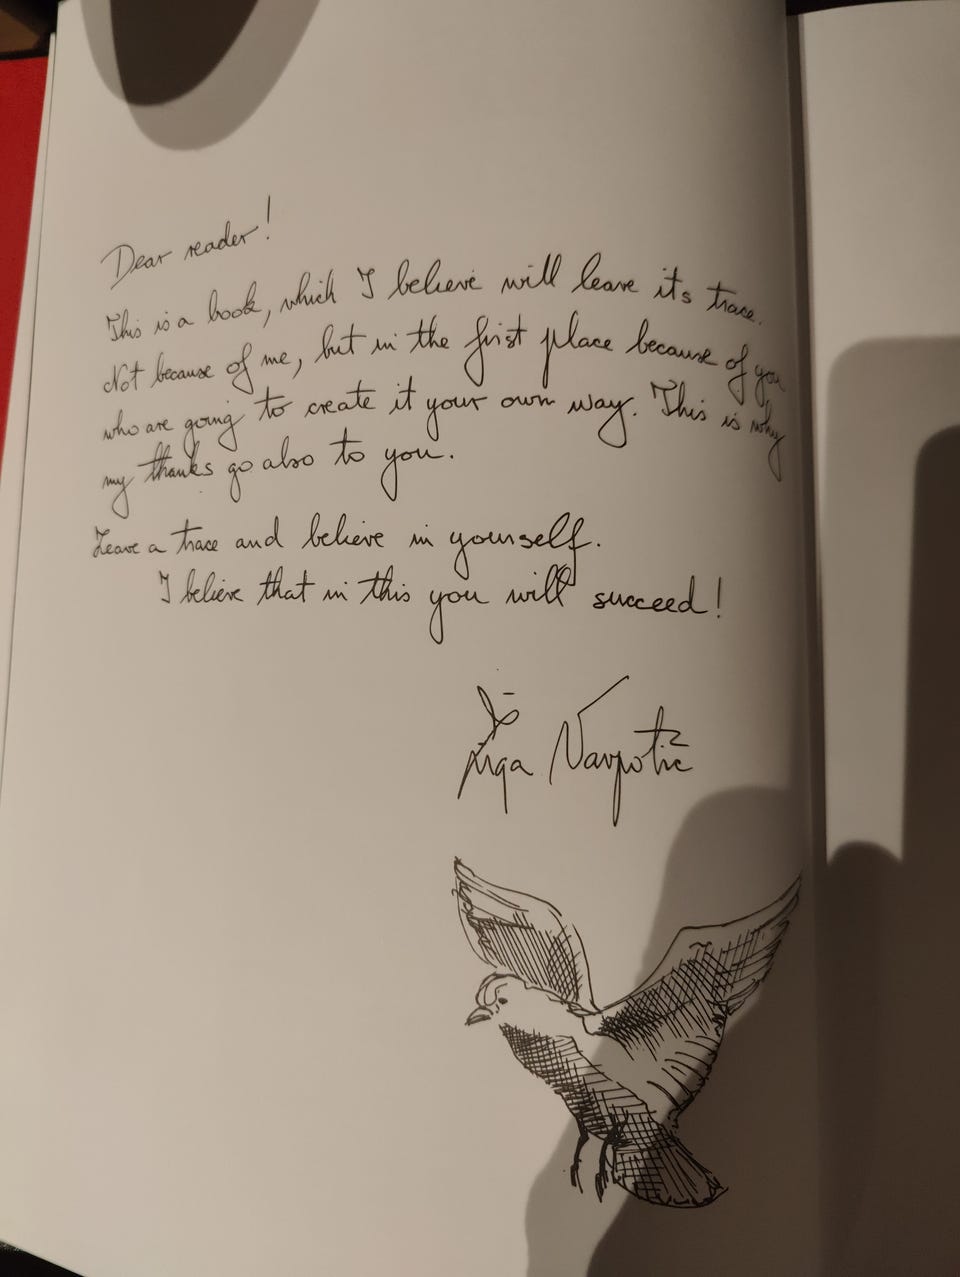 Dear reader!
This is a book, which I believe will leave its trace.
Not because of me, but in the first place because of you
who are going to create it your own way. This is why
my thanks go also to you.
Leave a trace and believe in yourself.
I believe that in this you will succeed!
Žiga